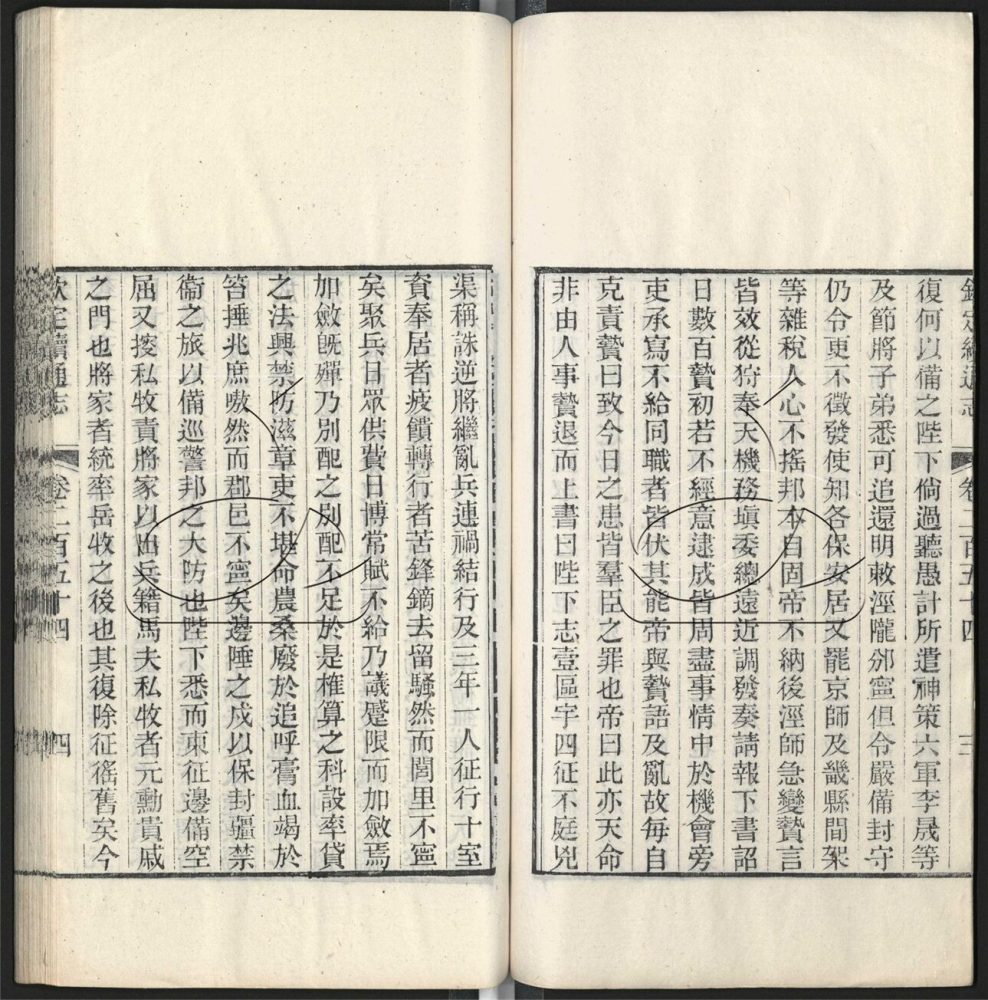 欽定續通志 卷二百五十四 三
復何以備之陛下倘過聽愚計所遣神策六軍李晟等
及節將子弟悉可追還明敕涇隴邠寧但令嚴備封守
仍令更不徵發使知各保安居又罷京師及畿縣間架
等雜稅人心不搖邦本自固帝不納後涇師急變贄言
皆效從狩奉天機務塡委總遠近調發奏請報下書詔
日數百贄初若不經意逮成皆周盡事情中於機會旁
吏承寫不給同職者皆伏其能帝與贄語及亂故每自
克責贄曰致今日之患皆羣臣之罪也帝曰此亦天命
非由人事贄退而上書曰陛下志壹區宇四征不庭兇
渠稱誅逆將繼亂兵連禍結行及三年一人征行十室
資奉居者疲饋轉行者苦鋒鏑去留騷然而閭里不寧
矣聚兵日眾供費日博常賦不給乃議蹙限而加斂焉
加斂旣殫乃別配之別配不足於是榷算之科設率貸
之法興禁防滋章吏不堪命農桑廢於追呼膏血竭於
笞捶兆庶嗷然而郡邑不寧矣邊陲之戍以保封疆禁
衞之旅以備巡警邦之大防也陛下悉而東征邊備空
屈又搜私牧責將家以出兵籍馬夫私牧者元勳貴戚
之門也將家者統率岳牧之後也其復除征徭舊矣今
欽定續通志 卷二百五十四 四